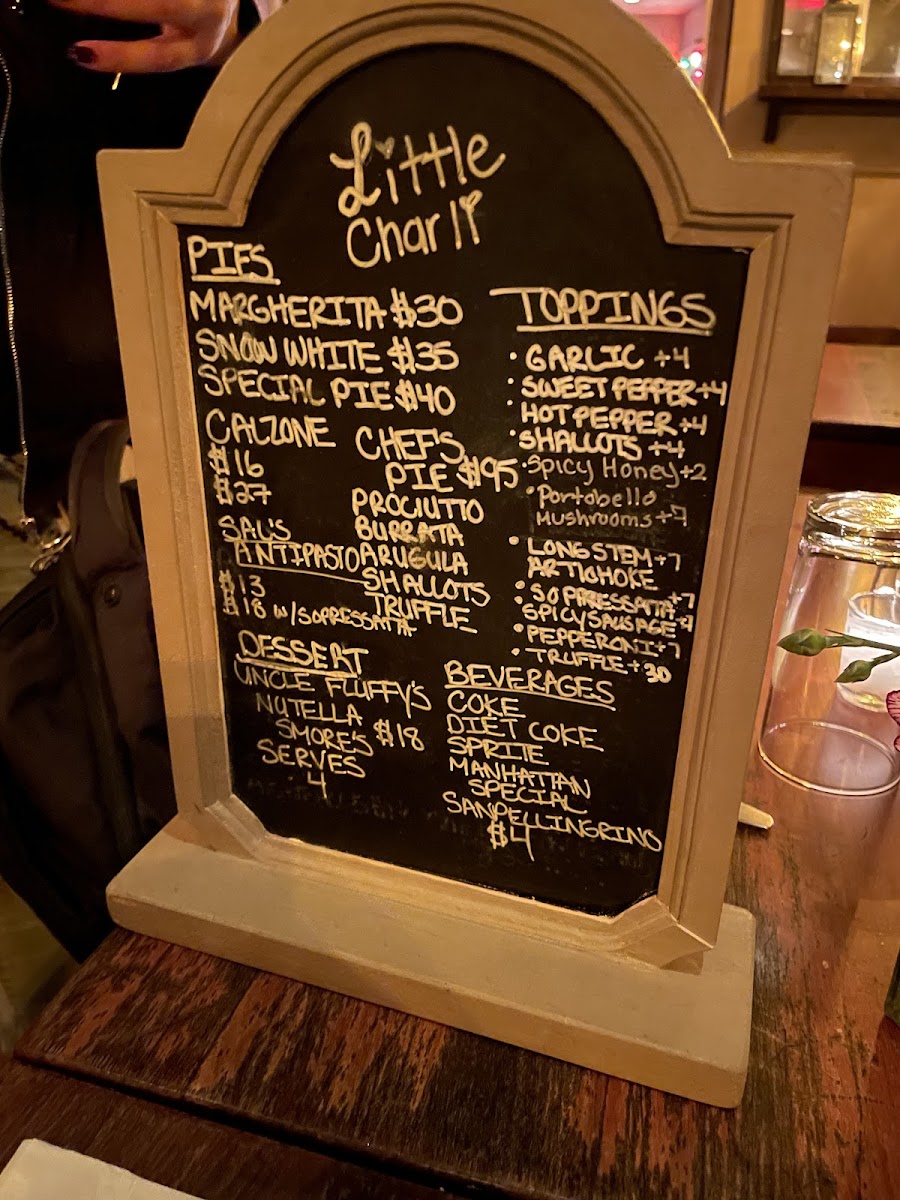 Little
Charli
PIES
MARGHERITA $30
SNOW WHITE $35
SPECIAL PIE $40
CALZONE
$16
$27
SAL'S
ANTIPASTO
$13
$18 W/SOPRESSATTA
CHEF'S
PIE $95
PROCIUTTO
BURRATA
ARUGULA
SHALLOTS
TRUFFLE
TOPPINGS
• GARLIC +4
• SWEET PEPPER +4
• HOT PEPPER +4
• SHALLOTS +4
• Spicy Honey +2
• Portobello
Mushrooms +7
• LONG STEM +7
ARTICHOKE
• SOPRESSATTA +7
• SPICY SAUSAGE
• PEPPERONI +7
• TRUFFLE +30
DESSERT
UNCLE FLUFFY'S
NUTELLA
SMORE'S $18
SERVES
4
BEVERAGES
COKE
DIET COKE
SPRITE
MANHATTAN
SPECIAL
SANPELLINGRINO
$4